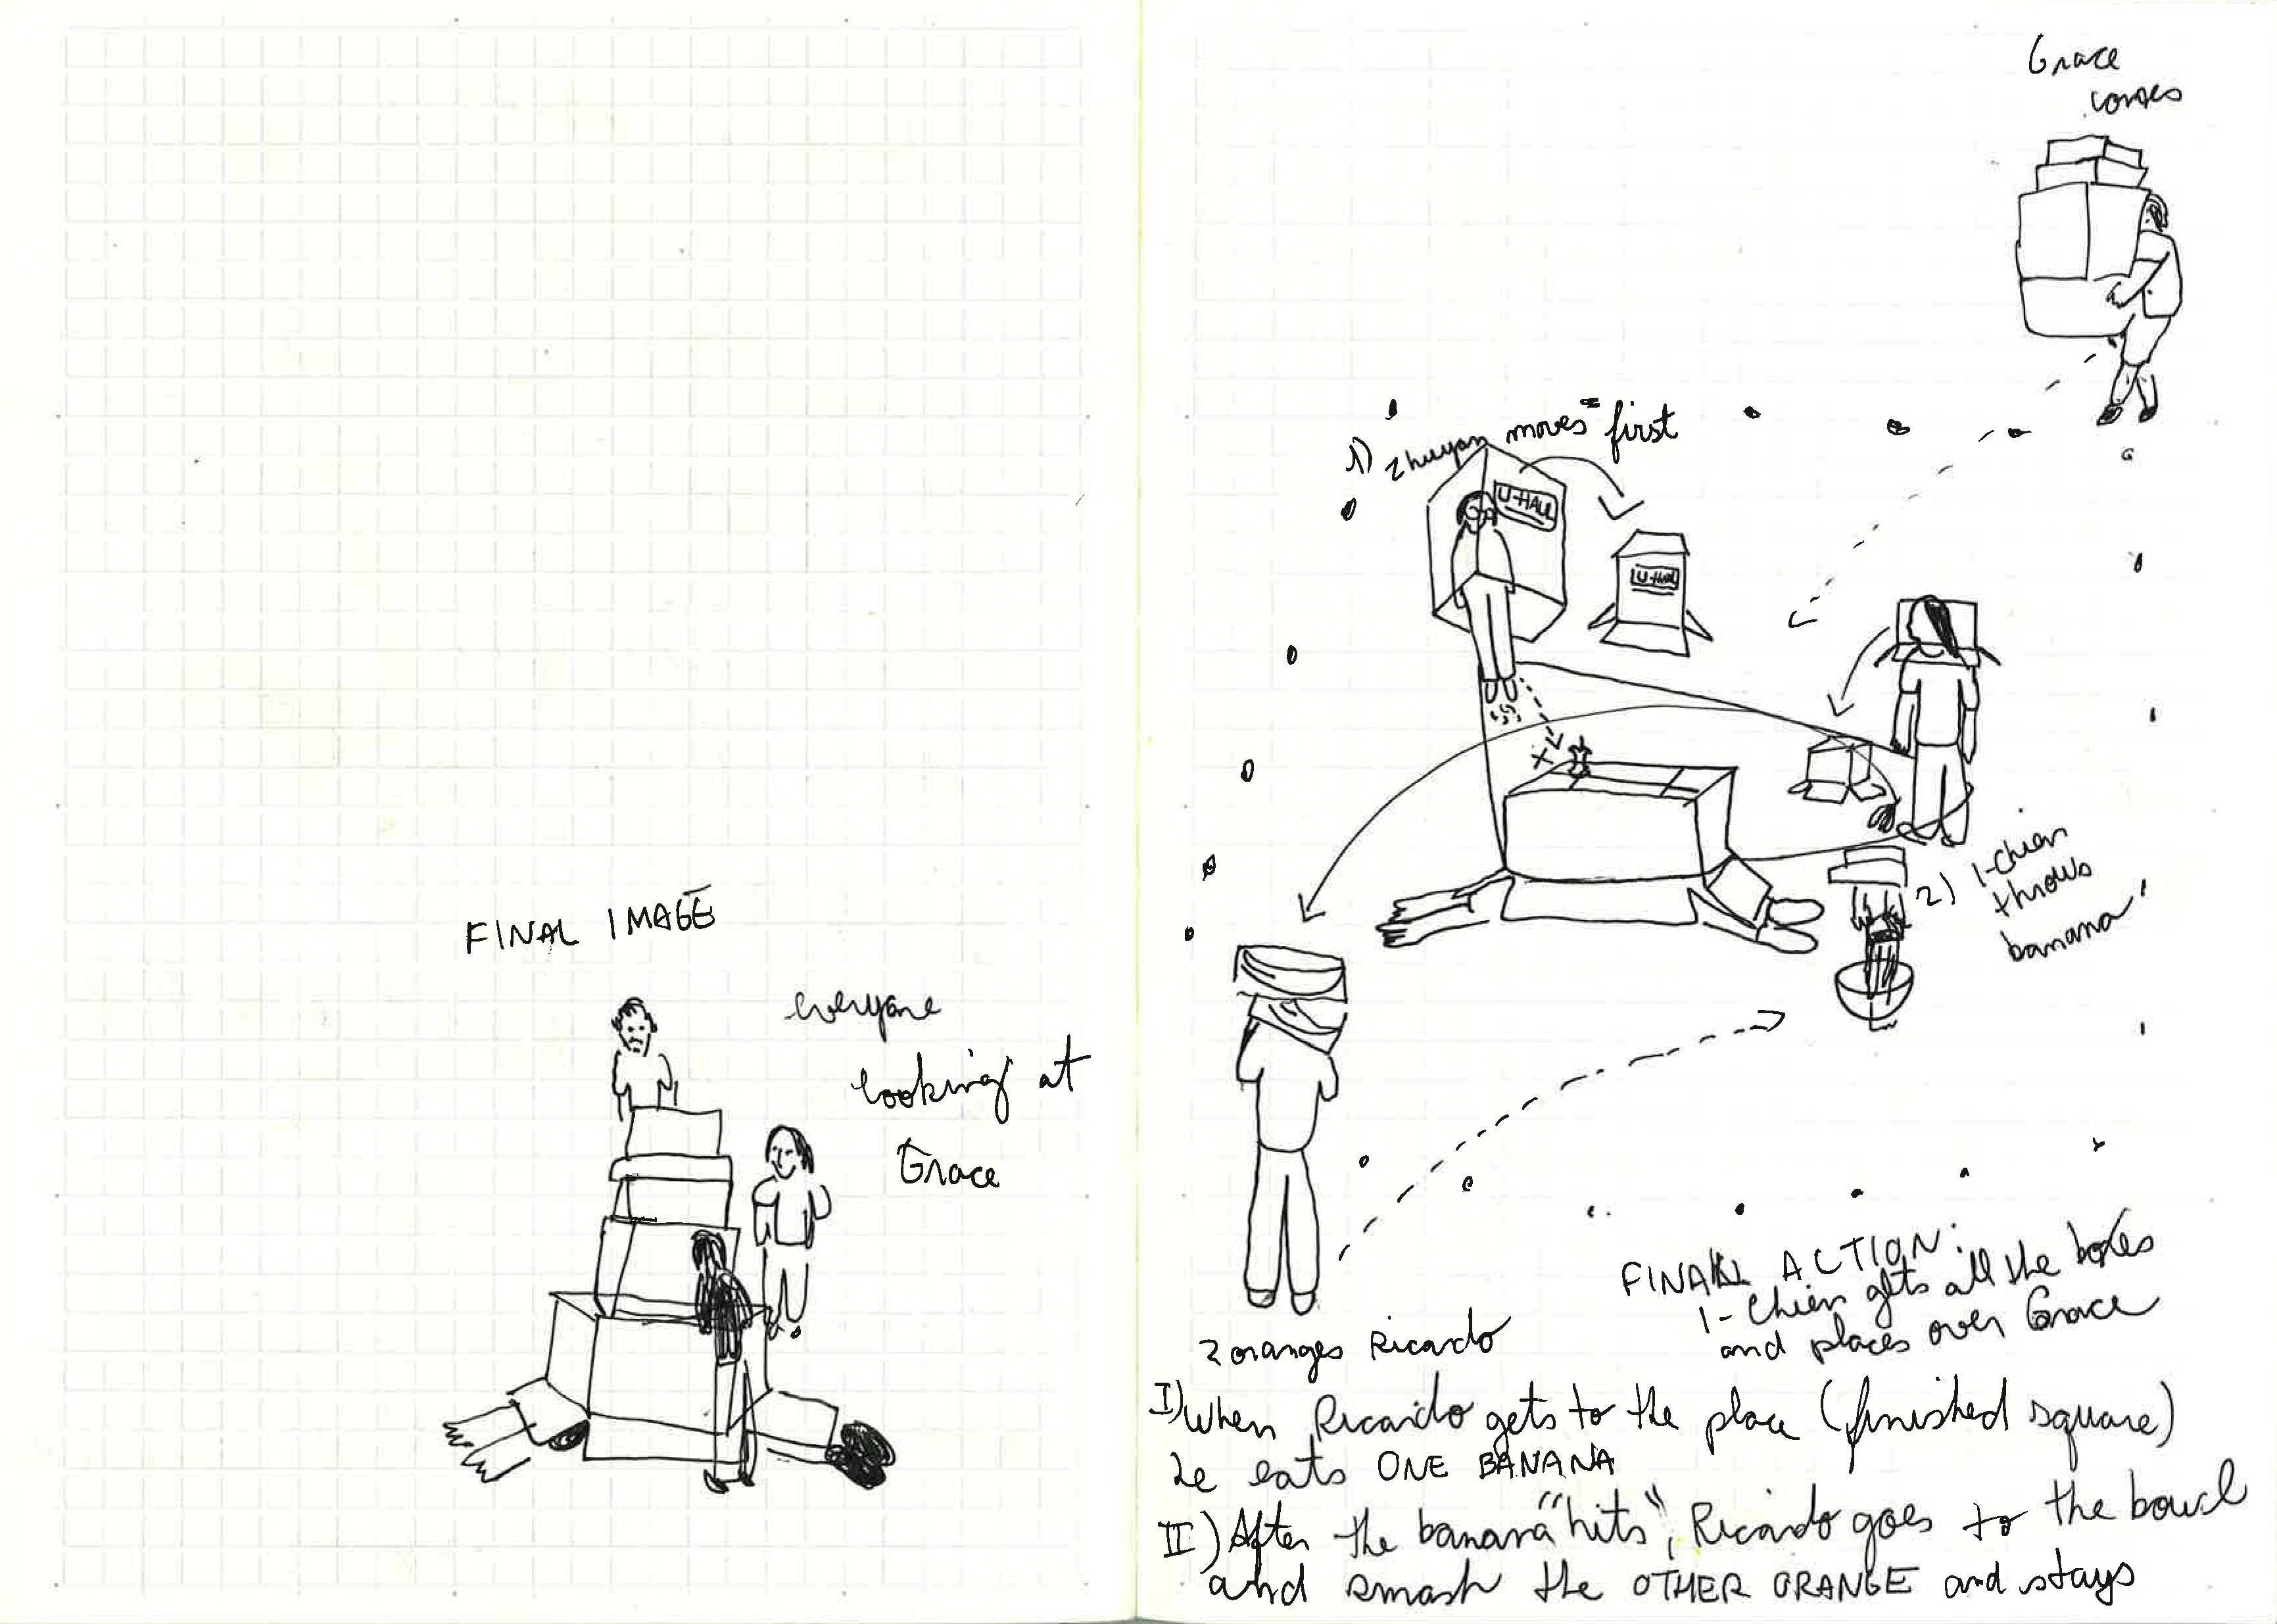 FINAL IMAGE
everyone
looking at
Grace
Grace
comes
1) Zhuyan moves first
U-HAUL
U-HAUL
2) I-Chien
throws
banana
2 oranges Ricardo
FINAL ACTION:
I-Chien gets all the boxes
and places over Grace
I) When Ricardo gets to the place (finished square)
he eats ONE BANANA
II) After the banana "hits", Ricardo goes to the bowl
and smash the OTHER ORANGE and stays